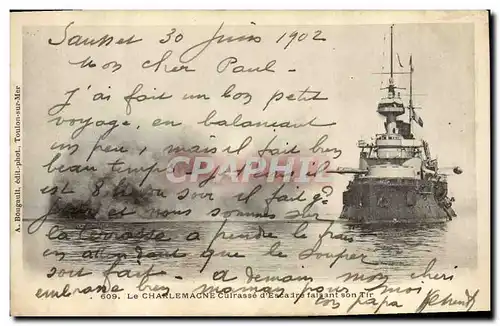 A. Bougault, édit.-phot. Toulon-sur-Mer
Sausset 30 Juin 1902
Mon cher Paul -
J'ai fait un bon petit
voyage, en balancant
un peu, mais il fait bien
beau temps
est 8 h du soir il fait
et nous sommes sur
la terrasse à prendre le frais
en attendant que le souper
soit fait - a demain mon cheri
embrasse bien maman pour moi
ton papa
CPHRC
609. LE CHARLEMAGNE Cuirassé d'Escadre faisant son Tir